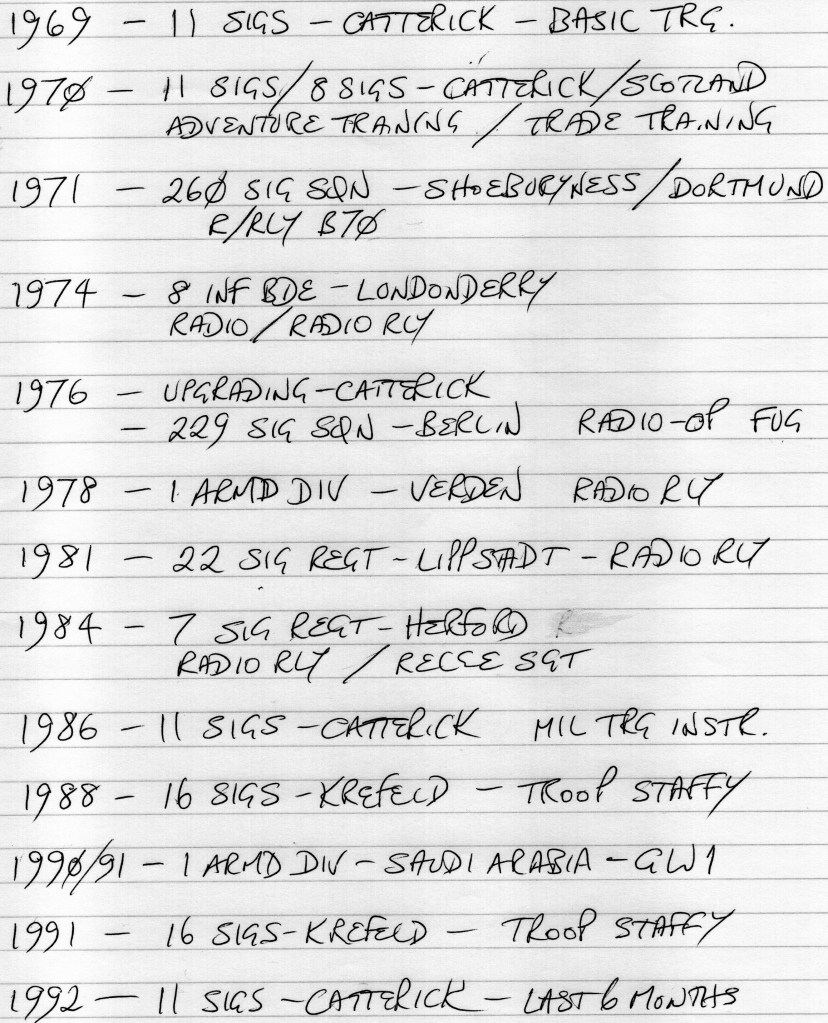 1969 - 11 SIGS - CATTERICK - BASIC TRG.
197Ø - 11 SIGS/8 SIGS - CATTERICK/SCOTLAND
ADVENTURE TRANING / TRADE TRAINING
1971 - 26Ø SIG SQN - SHOEBURYNESS/DORTMUND
R/RLY B7Ø
1974 - 8 INF BDE - LONDONDERRY
RADIO/RADIO RLY
1976 - UPGRADING - CATTERICK
- 229 SIG SQN - BERLIN RADIO-OP FUG
1978 - 1 ARMD DIV - VERDEN RADIO RLY
1981 - 22 SIG REGT - LIPPSADT - RADIO RLY
1984 - 7 SIG REGT - HERFORD
RADIO RLY / RECCE SGT
1986 - 11 SIGS - CATTERICK MIL TRG INSTR.
1988 - 16 SIGS - KREFELD - TROOP STAFFY
199Ø/91 - 1 ARMD DIV - SAUDI ARABIA - GW1
1991 - 16 SIGS - KREFELD - TROOP STAFFY
1992 - 11 SIGS - CATTERICK - LAST 6 MONTHS